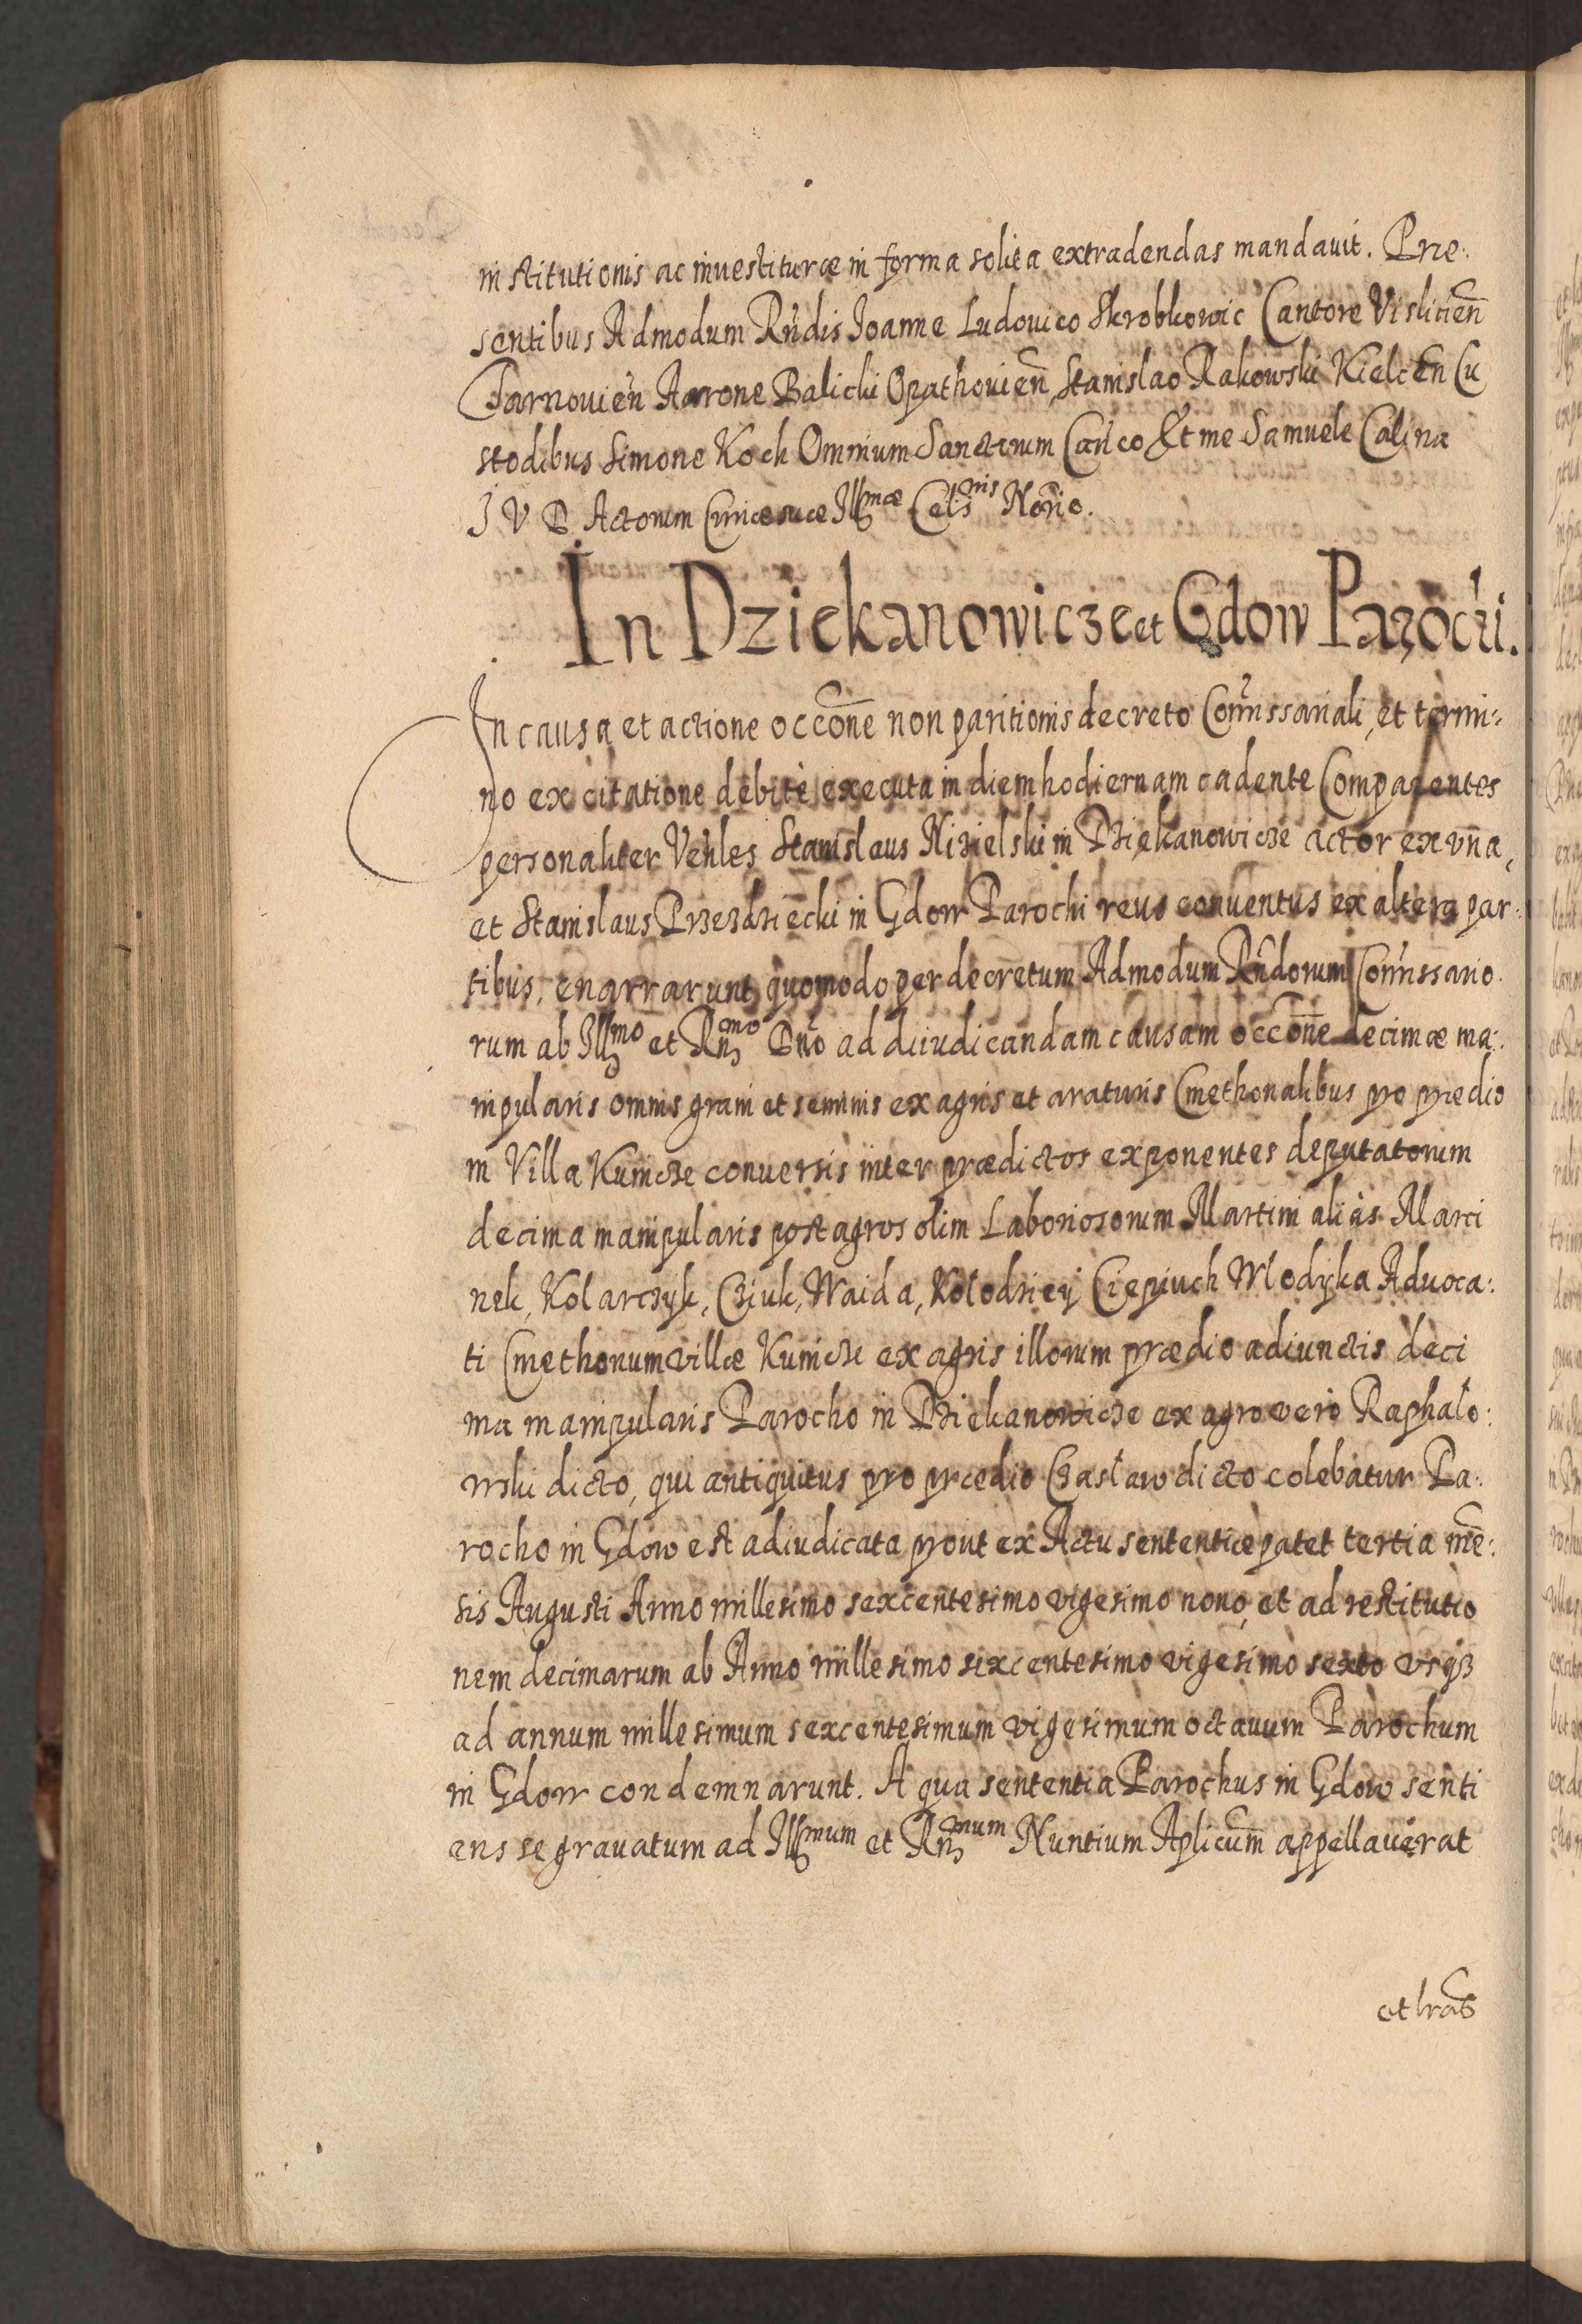 institutionis ac investituræ in forma solita extradendas mandavit. Præ:
sentibus Admodum Rñdis Joanne Ludovico Skrobkowic Cantore Vislicieñ
Tarnovieñ Aarone Balicki Opathovieñ, Stanislao Rakowski Kielceñ Cu
stodibus Simone Koch Omnium Sanctrum Cañco Et me Samuele Calina
J V D Actorum Curiæ suæ Illmæ Celsnis Norio.
In Dziekanowicze et Gdow Parochi.
In causa et actione occoñe non paritionis decreto Comissariali, et termi:
no ex citatione debitè executa in diem hodiernam cadente Comparentes
personaliter Veñles Stanislaus Nizielski in Dziekanowicze actor ex vna,
et Stanislaus Przezdziecki in Gdow Parochi reus conventus ex altera par:
tibus, enarrarunt quomodo per decretum Admodum Rñdorum Comissario:
rum ab Illmo et Rñmo Dño ad diiudicandam causam occoñe decimæ ma:
nipularis omnis grani et seminis ex agris et araturis Cmethonalibus pro prædio
in Villa Kunicze conversis inter prædictos exponentes deputatorum
decima manipularis post agros olim Laboriosorum Martini aliàs Marci
nek, Kolarczyk, Cziuk, Waida, Kołodziey Ciepiuch Włodyka Advoca:
ti Cmethonum villæ Kunicze ex agris illorum prædio adiunctis deci
ma manipularis Parocho in Dziekanowicze ex agro vero Raphało:
wski dicto, qui antiquitus pro prædio Czasław dicto colebatur Pa:
rocho in Gdow est adiudicata prout ex Actu sententiæ patet tertia mẽ:
sis Augusti Anno millesimo sexcentesimo vigesimo nono, et ad restitutio
nem decimarum ab Anno millesimo sixcentesimo vigesimo sexto vsqȝ
ad annum millesimum sexcentesimum vigesimum octavum Parochum
in Gdow condemnarunt. A qua sententia Parochus in Gdow senti
ens se gravatum ad Illmum et Rñmum Nuntium Aplicum appellaverat
et lras